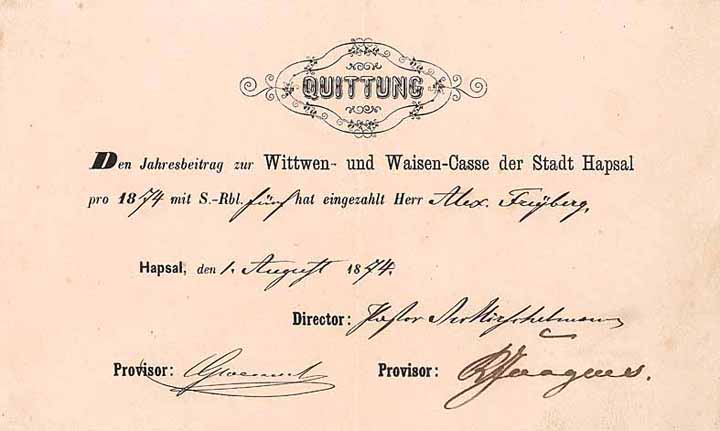 QUITTUNG
Den Jahresbeitrag zur Wittwen- und Waisen-Casse der Stadt Hapsal
pro 1874 mit S.-Rbl. fünf hat eingezahlt Herr Alex. Freÿberg,
Hapsal, den 1. August 1874.
Director: Pastor
Provisor:
Provisor: